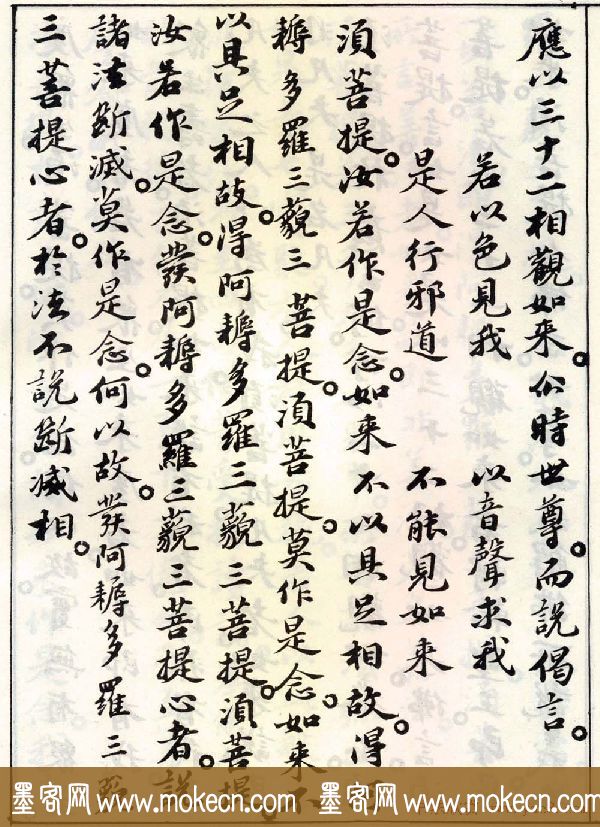 應以三十二相觀如来。尒時世尊。而說偈言。
若以色見我 以音聲求我
是人行邪道 不能見如来
須菩提。汝若作是念。如来不以具足相故。得阿
耨多羅三藐三菩提。須菩提。莫作是念。如来不
以具足相故。得阿耨多羅三藐三菩提。須菩提
汝若作是念。發阿耨多羅三藐三菩提心者。說
諸法斷滅。莫作是念。何以故。發阿耨多羅三藐
三菩提心者。於法不說斷滅相。
墨客网 www.mokecn.com 墨客网 www.mokecn.com